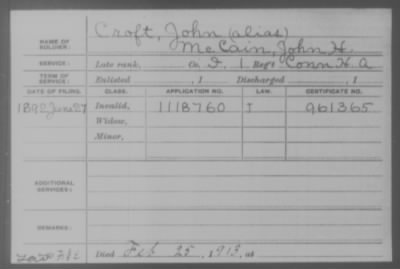 NAME OF SOLDIER: Croft, John (alias)
McCain, John H.
SERVICE: Late rank, Co. I, 1 Reg't Conn H. A
TERM OF SERVICE: Enlisted , 1 Discharged , 1
DATE OF FILING. CLASS. APPLICATION NO. LAW. CERTIFICATE NO.
1892 June 27 Invalid, 1118760 J 961365
Widow,
Minor,
ADDITIONAL SERVICES:
REMARKS:
Died Feb 25, 1913, at